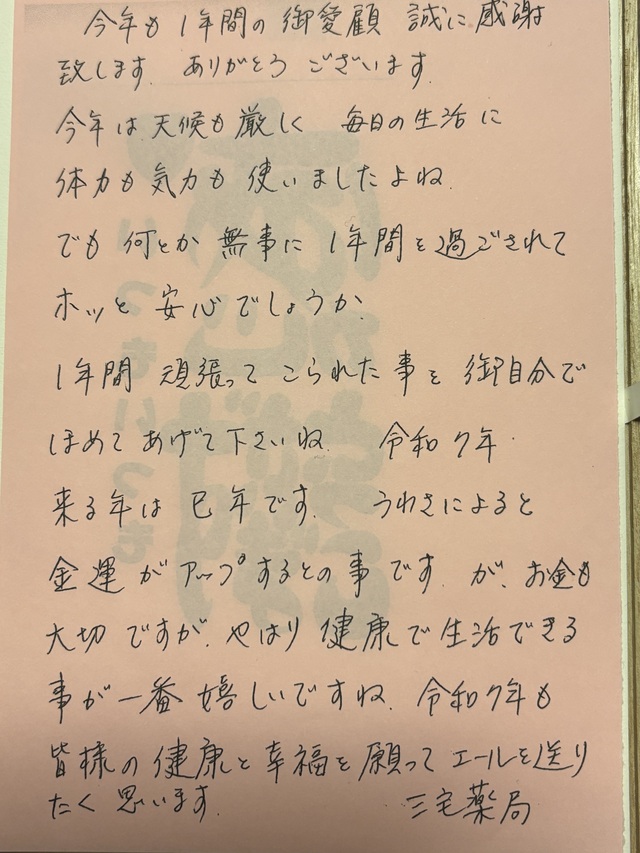 今年も1年間の御愛顧 誠に感謝
致します。ありがとう ございます。
今年は天候も厳しく 毎日の生活に
体力も気力も 使いましたよね。
でも 何とか 無事に 1年間を過ごされて
ホッと 安心でしょうか。
1年間 頑張って こられた事を 御自分で
ほめて あげて下さいね。 令和7年
来る年は 巳年です。 うわさによると
金運がアップするとの事です。が、お金も
大切ですが、やはり健康で生活できる
事が一番嬉しいですね。令和7年も
皆様の健康と幸福を願ってエールを送り
たく思います。 三宅薬局